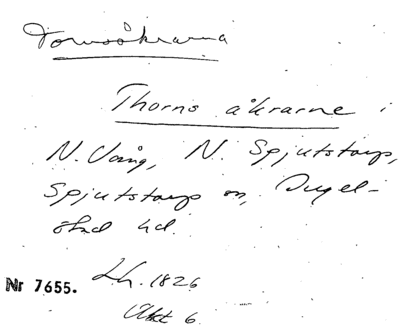 Tornsåkrarna
Thorns åkrarne i
N. Vång, N. Spjutstorp,
Spjutstorp sn, Ingel-
stad hd.
Lh. 1826
Nr 7655.
Akt 6